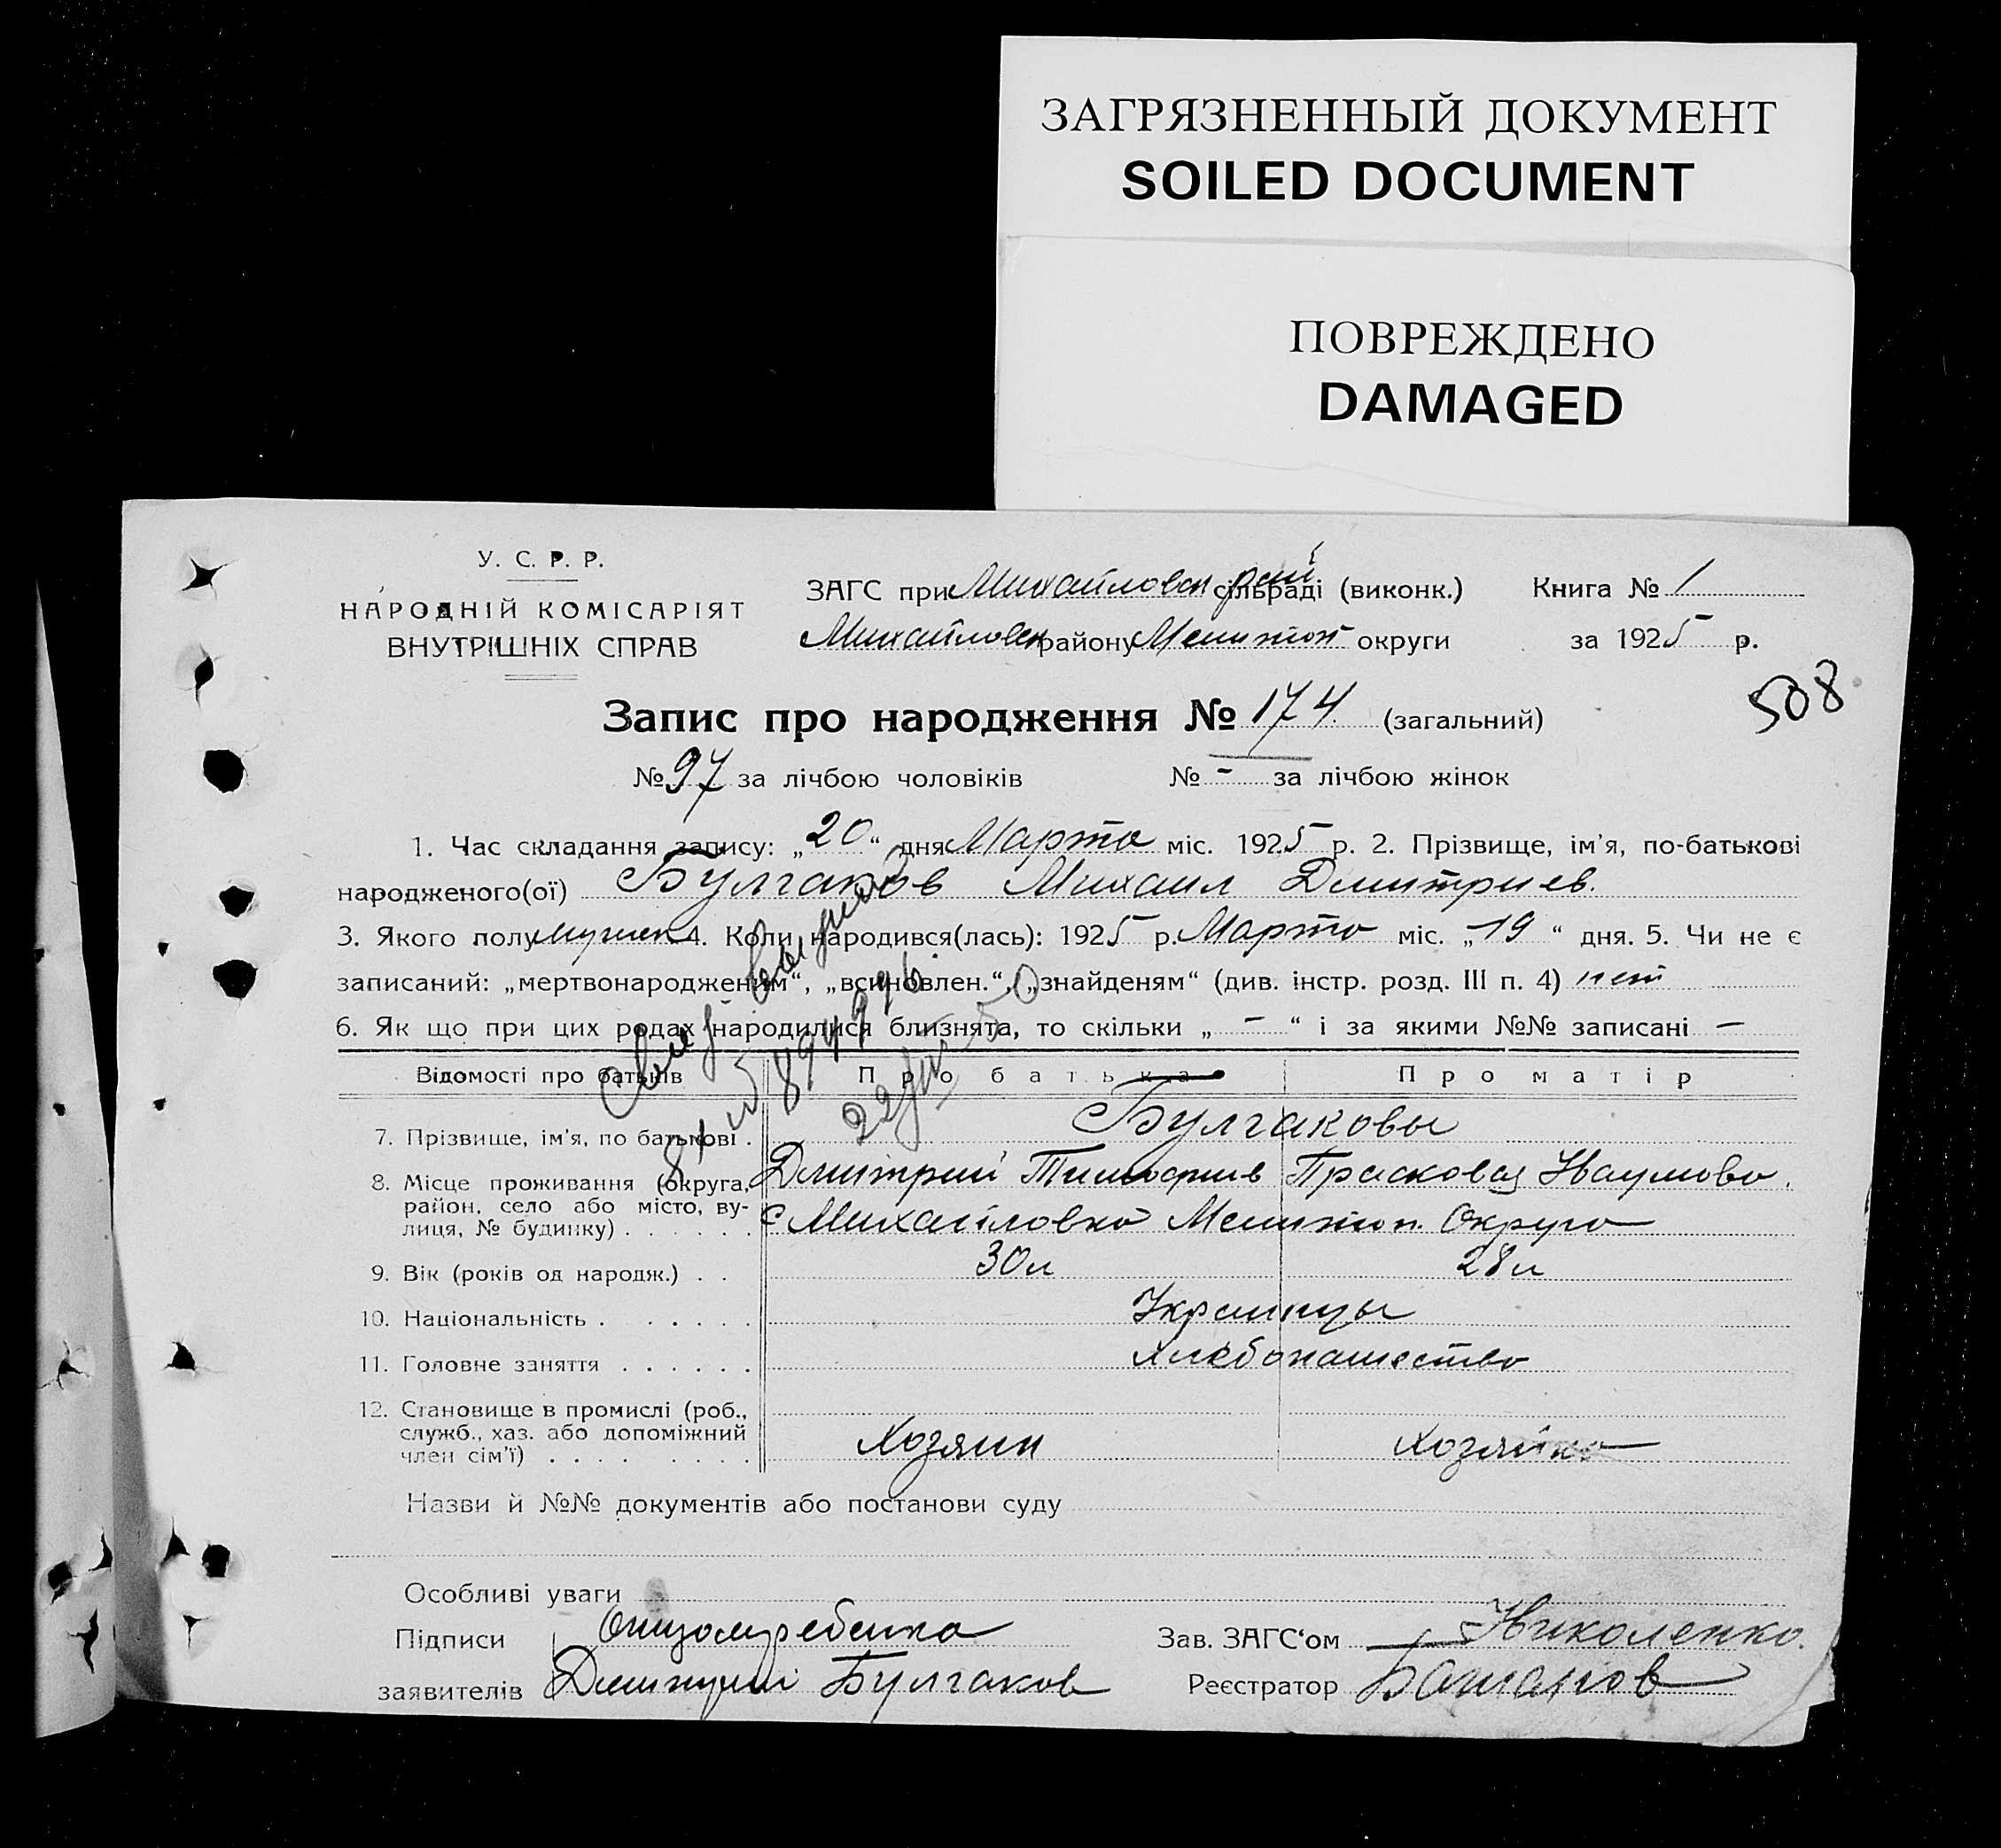 ЗАГРЯЗНЕННЫЙ ДОКУМЕНТ
SOILED DOCUMENT
ПОВРЕЖДЕНО
DAMAGED
У. С. Р. Р.
НАРОДНІЙ КОМІСАРІЯТ
ВНУТРІШНІХ СПРАВ
ЗАГС при Михайловск рай сільраді (виконк.) Книга № 1
Михайловск району Мелитоп округи за 1925 р.
508
Запис про народження № 174 (загальний)
№ 97 за лічбою чоловіків № - за лічбою жінок
1. Час складання запису: „20“ дня Марта міс. 1925 р. 2. Прізвище, ім’я, по-батькові
народженого(ої) Булгаков Михаил Дмитриев.
3. Якого полу мужск 4. Коли народився(лась): 1925 р. Марта міс. „19“ дня. 5. Чи не є
записаний: „мертвонародженим“, „всиновлен.“, „знайденям“ (див. інстр. розд. III п. 4) нет
6. Як що при цих родах народилися близнята, то скільки „ - “ і за якими №№ записані -
Відомості про батьків Про батька Про матір
7. Прізвище, ім’я, по батькові . Булгаковы
8. Місце проживання (округа, Дмитрий Тимофиев Прасковья Наумова.
район, село або місто, ву-
лиця, № будинку) . . . . . . с Михайловка Мелитоп. Округа
9. Вік (років од народж.) . . 30 л 28 л
10. Національність . . . . . . Украинцы
11. Головне заняття . . . . . . Хлебопашество
12. Становище в промислі (роб.,
служб., хаз. або допоміжний Хозяин Хозяйка
член сім’ї) . . . . . . . .
Назви й №№ документів або постанови суду
Особливі уваги
Підписи Отец ребенка Зав. ЗАГС‘ом Николенко.
заявителів Дмитрий Булгаков Реєстратор